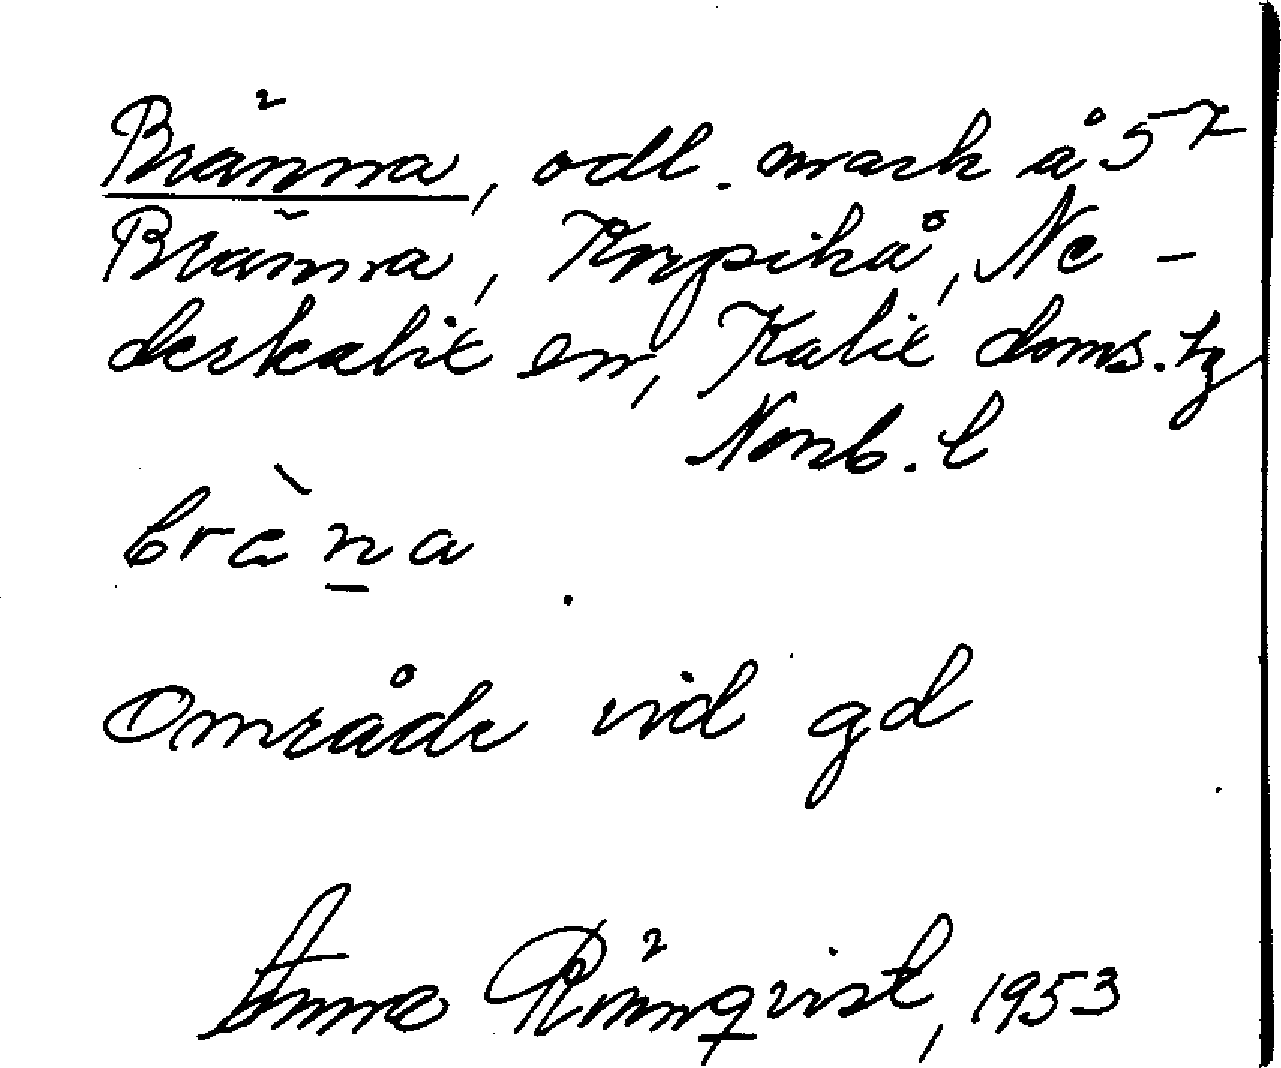 Bränna, odl. mark å 5²
Bränna, Korpikå, Ne-
derkalix sn, Kalix doms. tg
Norrb. l
brèna
Område vid gd
Anna Rönnqvist, 1953